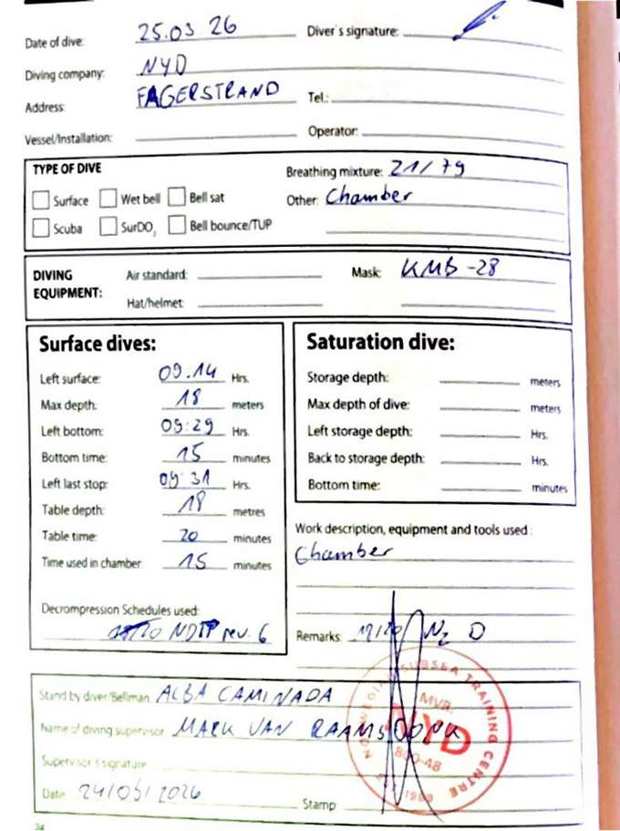 Date of dive: 25.03 26 Diver's signature:
Diving company: NYD
Address: FAGERSTRAND Tel.:
Vessel/Installation: Operator:
TYPE OF DIVE
Breathing mixture: 21/79
Surface Wet bell Bell sat
Other: Chamber
Scuba SurDO₂ Bell bounce/TUP
DIVING EQUIPMENT:
Air standard: Mask: KMB-28
Hat/helmet:
Surface dives:
Left surface: 09.14 Hrs.
Max depth: 18 meters
Left bottom: 09:29 Hrs.
Bottom time: 15 minutes
Left last stop: 09:31 Hrs.
Table depth: 18 metres
Table time: 20 minutes
Time used in chamber: 15 minutes
Decrompression Schedules used:
NDTP rev. 6
Saturation dive:
Storage depth: meters
Max depth of dive: meters
Left storage depth: Hrs.
Back to storage depth: Hrs.
Bottom time: minutes
Work description, equipment and tools used:
Chamber
Remarks:
Stand by diver/Bellman ALBA CAMINADA
Name of diving supervisor MARK VAN RAAMSDONK
Supervisor's signature
Date: 24/03/2026 Stamp
SUBSEA TRAINING CENTRE
MVR.
NYD
34